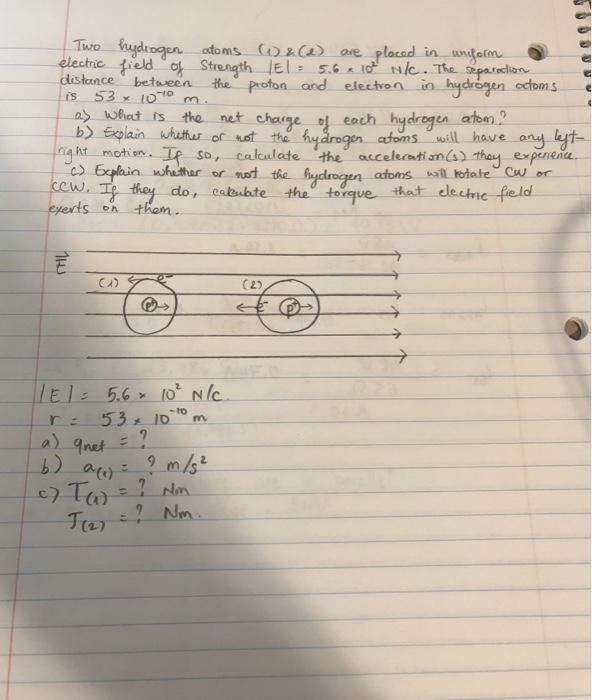 Two hydrogen atoms (1) & (2) are placed in uniform
electric field of Strength |E| = 5.6 × 10² N/C. The separation
distance between the proton and electron in hydrogen atoms
is 53 × 10⁻¹⁰ m.
a) What is the net charge of each hydrogen atom?
b) Explain whether or not the hydrogen atoms will have any left-
right motion. If so, calculate the acceleration(s) they experience.
c) Explain whether or not the hydrogen atoms will rotate CW or
CCW. If they do, calculate the torque that electric field
exerts on them.
E
(1) e⁻ (2)
p⁺ e⁻ p⁺
|E| = 5.6 × 10² N/C.
r = 53 × 10⁻¹⁰ m
a) qnet = ?
b) a(1) = ? m/s²
c) T(1) = ? Nm
T(2) = ? Nm.